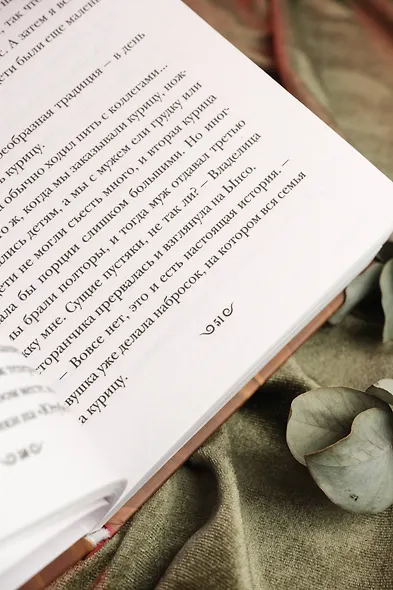 так что
. А затем я
ети были еще мален
еобразная традиция — в день
а курицу.
обычно ходил пить с коллегами...
о ж, когда мы заказывали курицу, нож-
лись детям, а мы с мужем ели грудку или
ети не могли съесть много, и вторая курица
ала бы порции слишком большими. Но иног-
ы брали полторы, и тогда муж отдавал третью
кку мне. Сущие пустяки, не так ли? — Владелица
торанчика прервалась и взглянула на Ынсо.
— Вовсе нет, это и есть настоящая история. —
вушка уже делала набросок, на котором вся семья
а курицу.